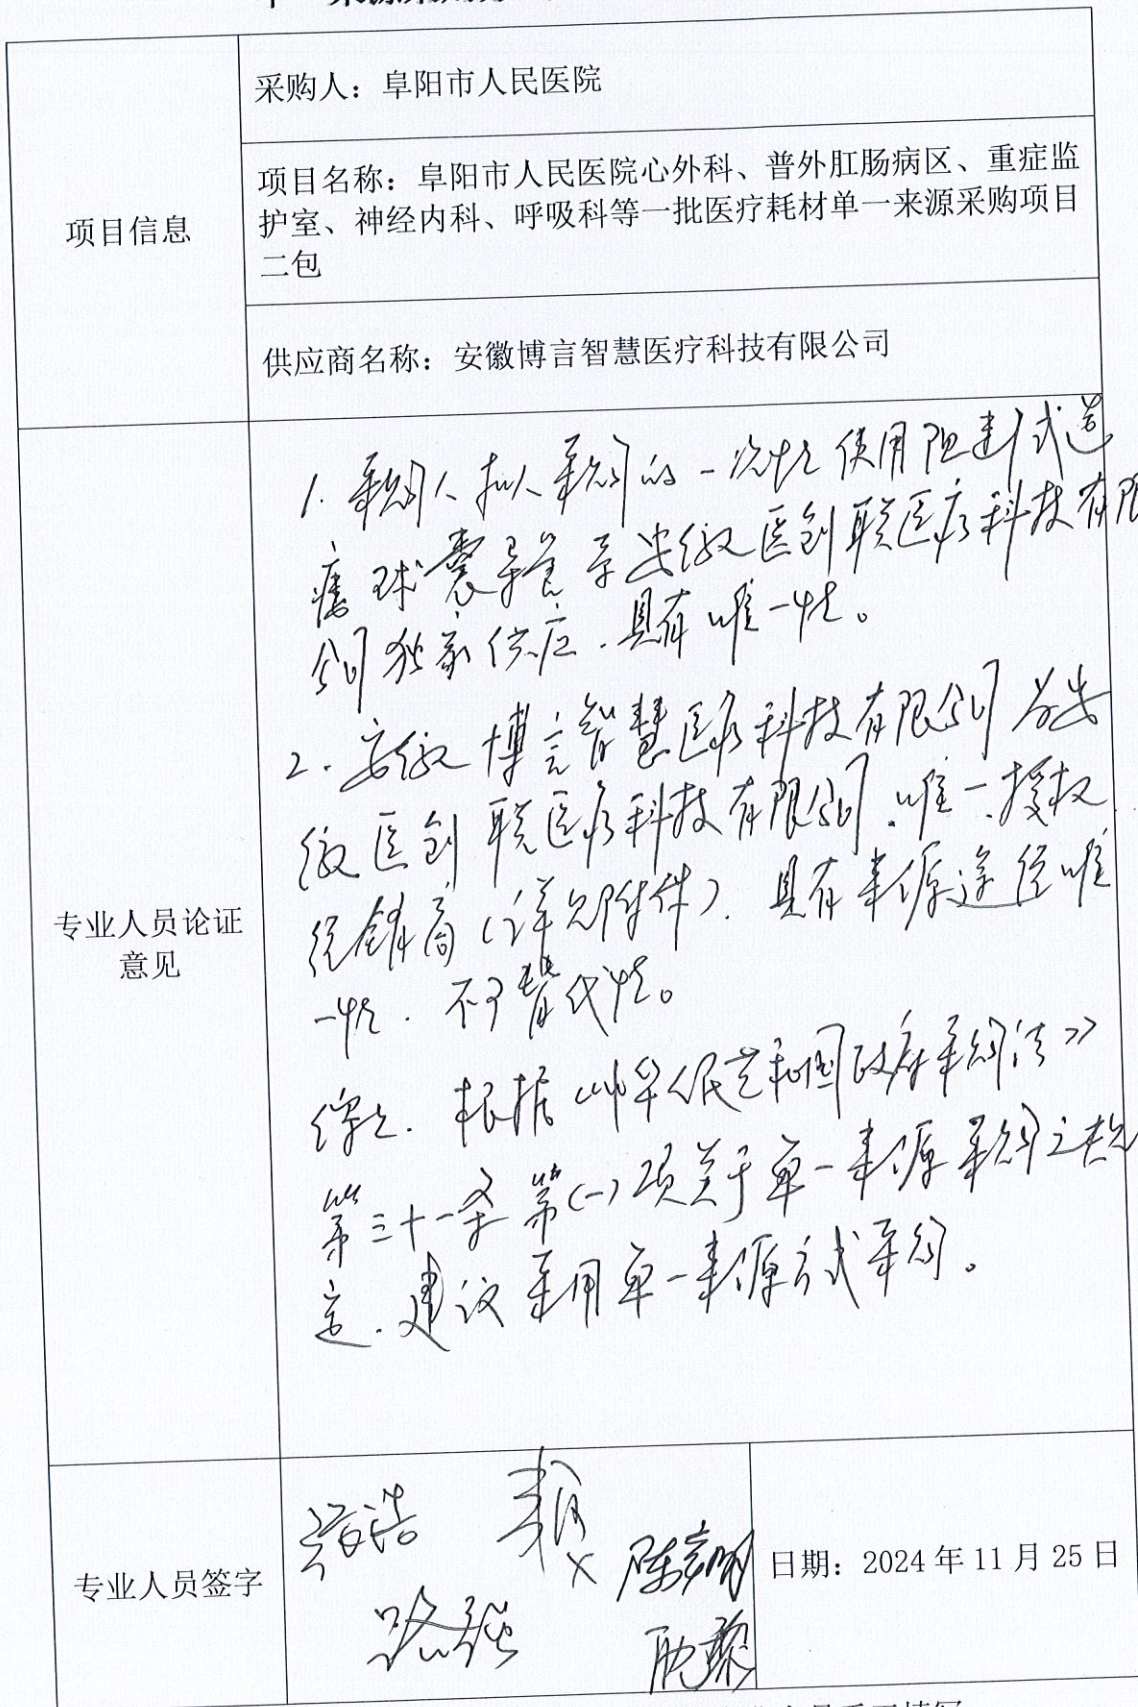 采购人：阜阳市人民医院
项目名称：阜阳市人民医院心外科、普外肛肠病区、重症监
护室、神经内科、呼吸科等一批医疗耗材单一来源采购项目
二包
项目信息
供应商名称：安徽博言智慧医疗科技有限公司
1. 采购人拟采购的一次性使用阻断式造
瘘球囊导管系安徽医创联医疗科技有限
公司独家供应．具有唯一性。
2. 安徽博言智慧医疗科技有限公司为安
徽医创联医疗科技有限公司唯一授权
经销商（详见附件）．具有来源途径唯
一性．不可替代性。
综上．根据《中华人民共和国政府采购法》
第三十一条第(一)项关于单一来源采购之规
定．建议采用单一来源方式采购。
专业人员论证
意见
专业人员签字
路强
日期：2024 年 11 月 25 日